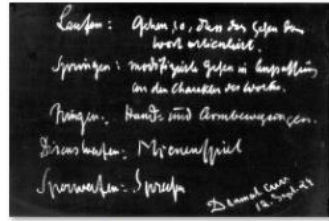 Laufen: Gehen so, dass das Gehen dem
Wort artikuliert.
Springen: modifizierte Gehen in Anpassung
an den Charakter des Wortes.
Ringen: Hand- und Armbewegungen.
Diskuswerfen: Mienenspiel
Speerwerfen: Sprechen